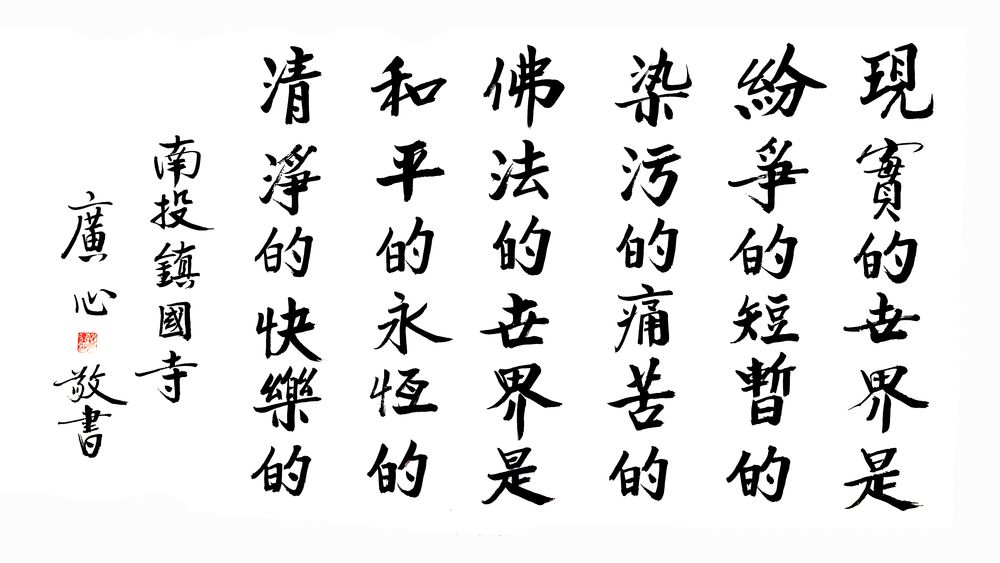 現實的世界是
紛爭的短暫的
染污的痛苦的
佛法的世界是
和平的永恆的
清淨的快樂的
南投鎮國寺
廣心敬書